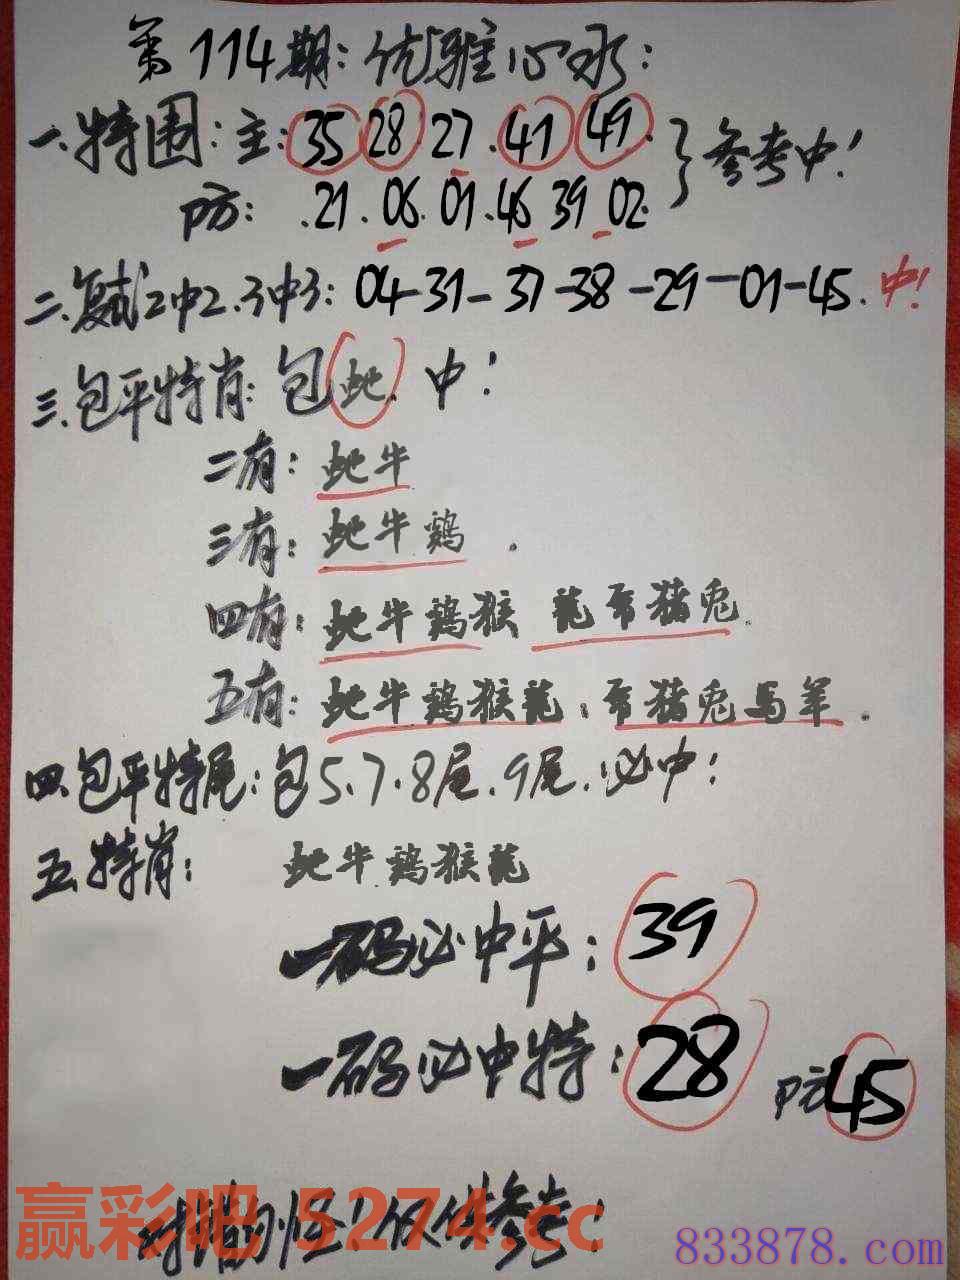 第114期:优雅心水:
一.特围:主:35 28.27.41 49.}参考中!
防:.21.06.01.46 39 02.
二.复式2中2.3中3:04-31-37-38-29-01-45.中!
三.包平特肖:包蛇.中!
二有:蛇牛
三有:蛇牛鸡.
四有:蛇牛鸡猴 龍 猪兔
五有:蛇牛鸡猴龍. 猪兔马羊.
四.包平特尾:包5.7.8尾.9尾.必中!
五.特肖: 蛇牛鸡猴龍
一码必中平:39
一码必中特:28 防45
对错勿怪!仅供参考!
赢彩吧 5274.cc
833878.com